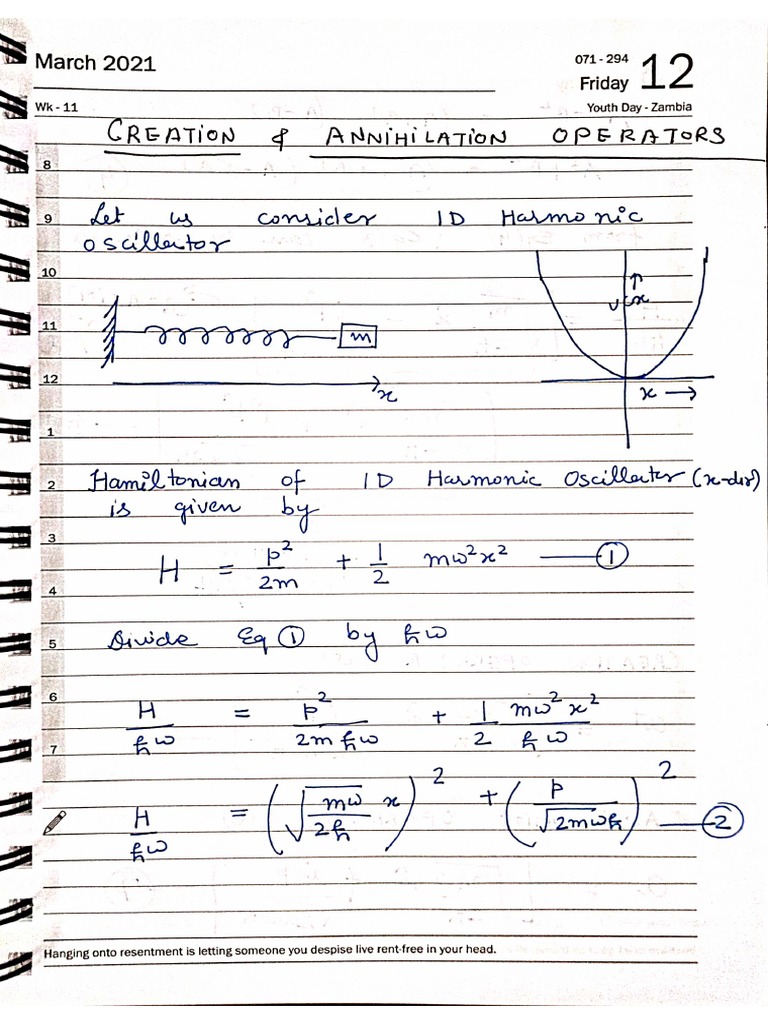 March 2021
071 - 294
Friday 12
Wk - 11
Youth Day - Zambia
CREATION & ANNIHILATION OPERATORS
8
9 Let us consider 1D Harmonic
oscillator
10
11 m
V(x) ↑
12 x
x →
1
2 Hamiltonian of 1D Harmonic Oscillator (x-dir)
is given by
3
H = p²/2m + 1/2 mω²x² —— ①
4
5 Divide Eq ① by ħω
6
H/ħω = p²/2mħω + 1/2 mω²x²/ħω
7
H/ħω = (√(mω/2ħ) x)² + (p/√(2mωħ))² —— ②
Hanging onto resentment is letting someone you despise live rent-free in your head.